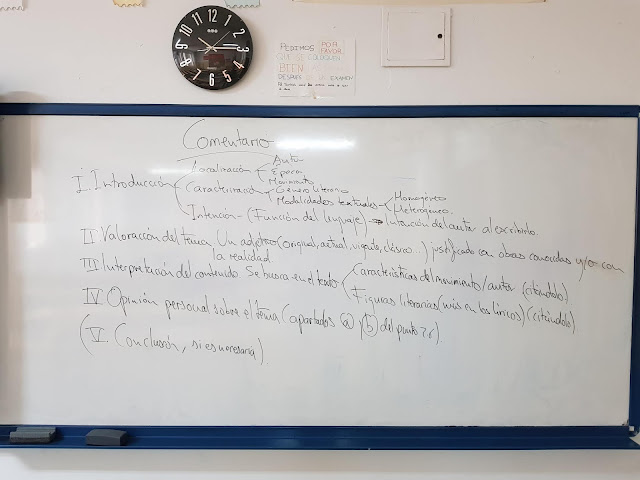 12
1
2
3
4
5
6
7
8
9
10
11
PEDIMOS POR
FAVOR
QUE SE COLOQUEN
BIEN
DESPUÉS DE UN EXAMEN
Comentario
I. Introducción
Localización
Autor
Época
Movimiento
Caracterización
Género literario
Modalidades textuales
Homogéneo
Heterogéneo
Intención - (Función del lenguaje) → Intención del autor al escribirlo.
II Valoración del tema Un adjetivo (original, actual, vigente, clásico...) justificado con obras conocidas y/o con
la realidad
III Interpretación del contenido Se busca en el texto
Características del movimiento/autor (citándolo)
Figuras literarias (más en los líricos) (citándolo)
IV Opinión personal sobre el tema (apartados a y b del punto 7.6)
(V. Conclusión, si es necesaria)